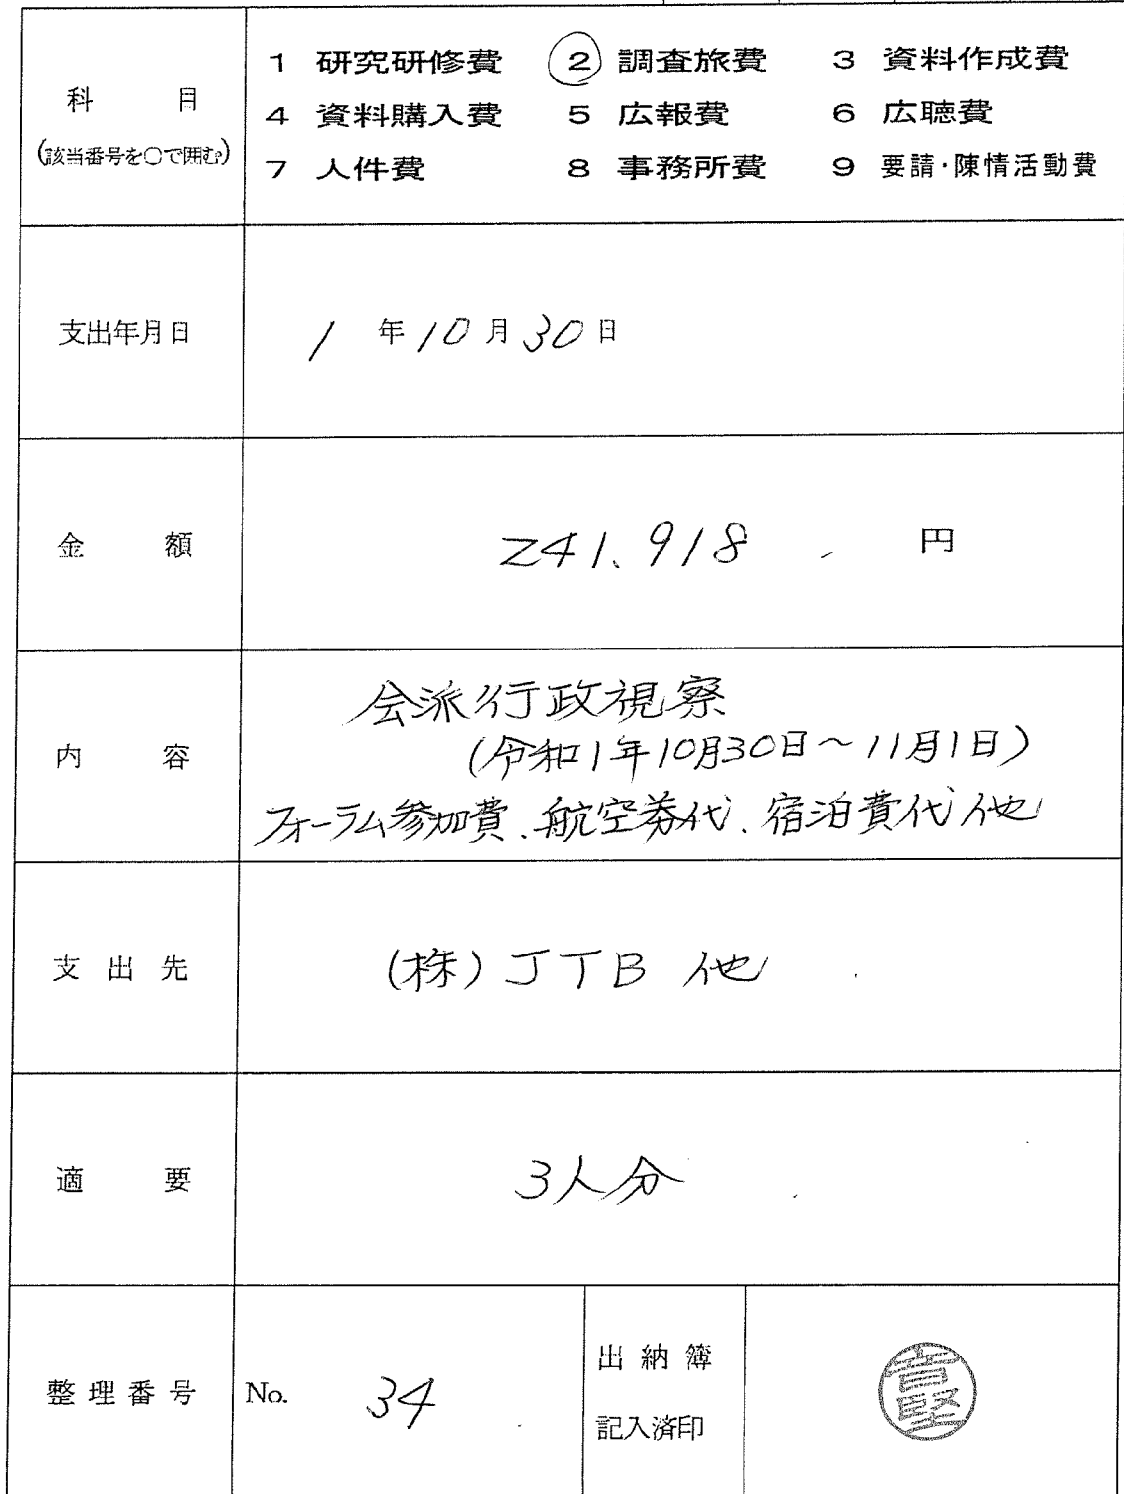 科目
(該当番号を○で囲む)
1 研究研修費 2 調査旅費 3 資料作成費
4 資料購入費 5 広報費 6 広聴費
7 人件費 8 事務所費 9 要請・陳情活動費
支出年月日
1 年 10 月 30 日
金額
241,918 円
内容
会派行政視察
(令和1年10月30日~11月1日)
フォーラム参加費、航空券代、宿泊費代他
支出先
(株)JTB 他
適要
3人分
整理番号
No. 34
出納簿
記入済印